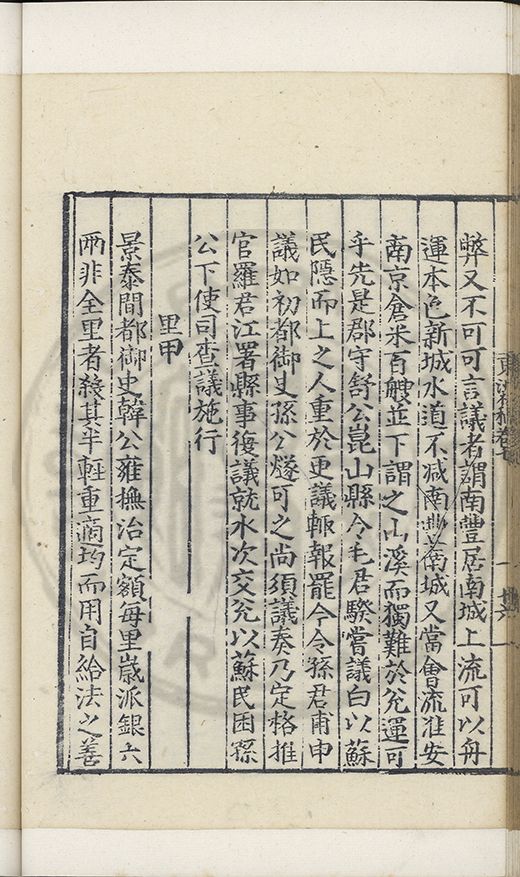 弊又不可可言議者謂南豐居南城上流可以舟
運本色新城水道不减南豐南城又當會流淮安
南京倉米百艘並下謂之山溪而獨難於兊運可
乎先是郡守舒公崑山縣令毛君騤嘗議白以蘇
民隱而上之人重於更議輙報罷今令孫君甫申
議如初都御史孫公燧可之尚須議奏乃定格推
官羅君江署縣事復議就水次交兊以蘇民困孫
公下使司查議施行
里甲
景泰間都御史韓公雍撫治定額每里歲派銀六
兩非全里者殺其半輕重適均而用自給法之善